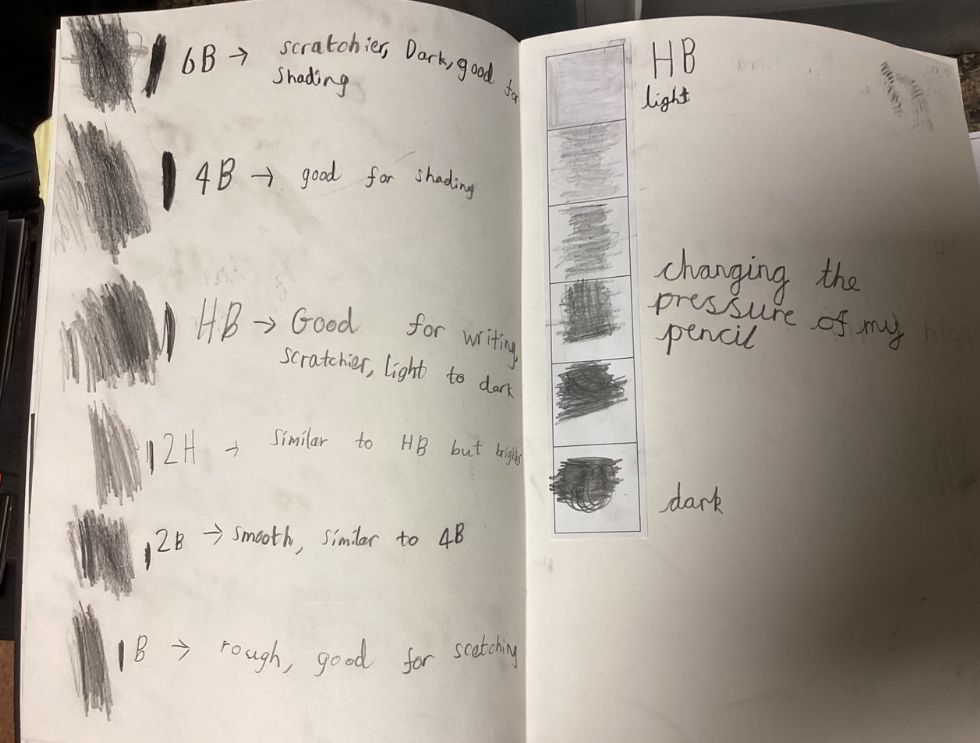 6B → scratchier, Dark, good for
Shading
4B → good for shading
HB → Good for writing,
scratchier, Light to dark
2H → Similar to HB but brighter
2B → smooth, similar to 4B
B → rough, good for scetching
HB
light
changing the
pressure of my
pencil
dark